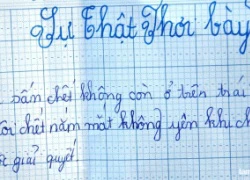 Sự Thật Phơi bày
sắn chết không còn ở trên trái
chết năm mắt không yên khi ch
giải quyết.